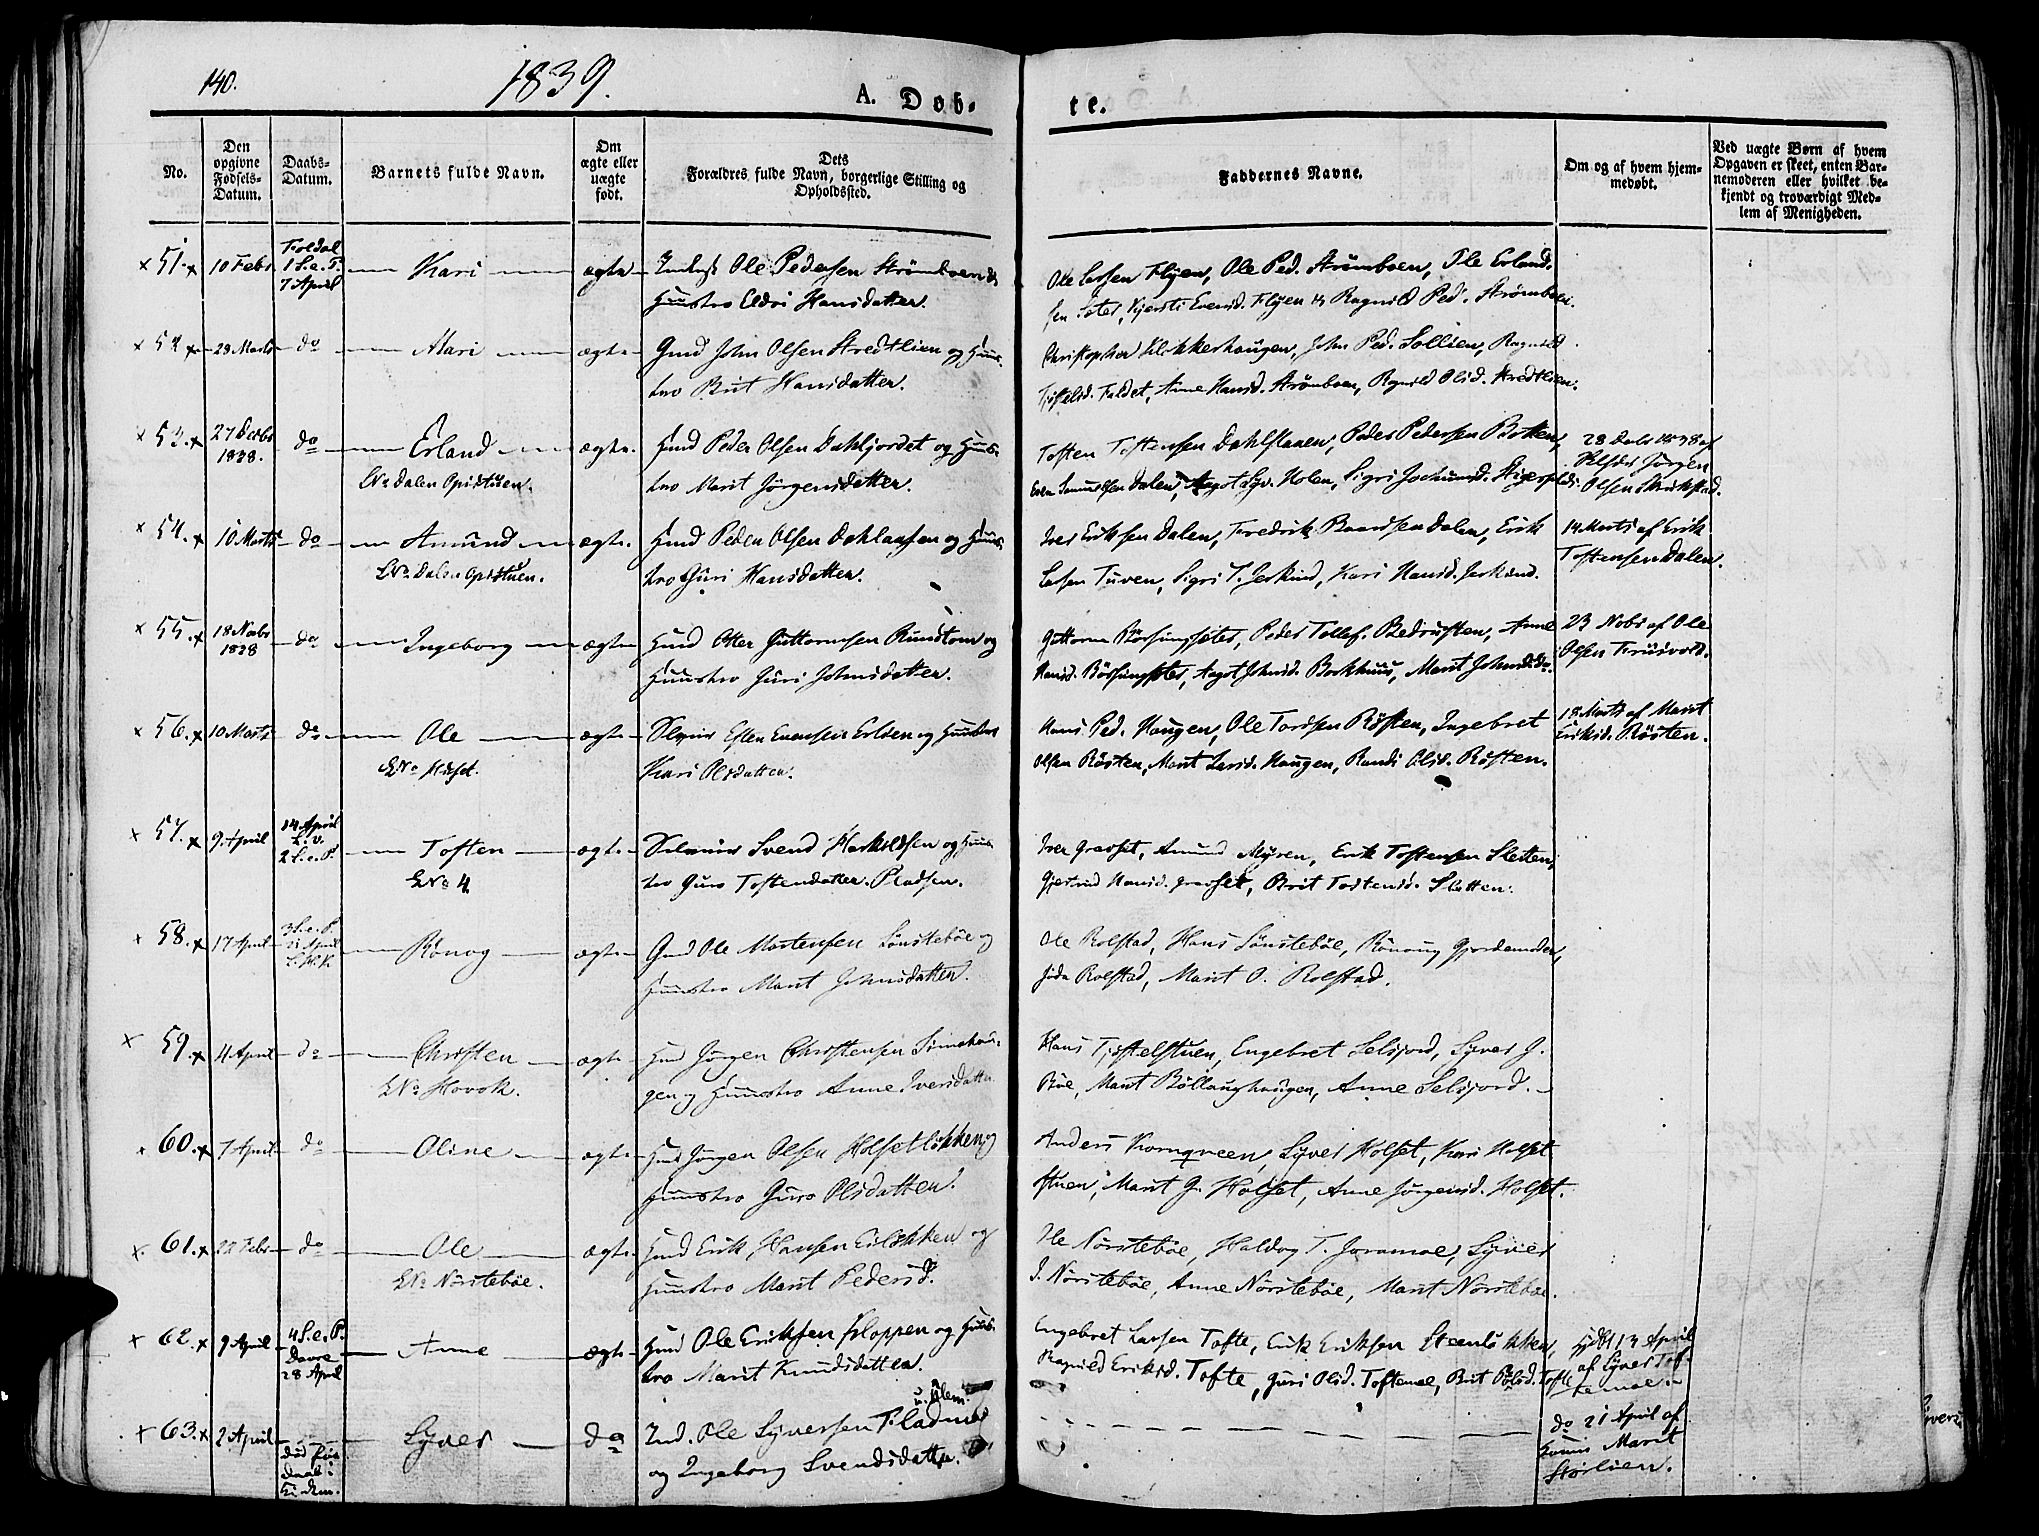 140.
1839.
A. Døb-
te.
No.
Den opgivne Fødsels-Datum.
Daabs-Datum.
Barnets fulde Navn.
Om ægte eller uægte født.
Dets Forældres fulde Navn, borgerlige Stilling og Opholdssted.
Faddernes Navne.
Om og af hvem hjem-
medøbt.
Ved uægte Børn af hvem
Opgaven er skeet, enten Bar-
nemoderen eller hvilket be-
kjendt og troværdigt Med-
lem af Menigheden.
51. 10 Febr Foldal 1 S.e.P. 7 April Kari ægte Ole Pedersen Strømboen
Huustro Eldri Hansdatter.
Ole Larsen Flyen, Ole Ped. Strømboen, Ole Erland-
sen Seter, Kjersti Evensd. Flyen og Ragnild Ped. Strømboen.
52. 28 Marts do Mari ægte Gmd John Olsen Stredtlien og Huus-
tro Brit Hansdatter.
Christopher Klokkerhaugen, John Ped. Sollien, Ragnild
Faldet, Anne Hansd. Strømboen, Ragnild Olsd. Stredtlien.
53. 27 Decbr 1838. do Erland ægte Huusmd Peder Olsen Dahljordet og Huus-
tro Marit Jørgensdatter.
LNo Dalen Opistuen.
Tosten Tostensen Dahlslaaen, Peder Pedersen Botten,
Even Samuelsen Dalen, Aagot Syv. Holen, Sigri Jochumsd.
28 Decbr 1838 af
Jørgen
Olsen
54. 10 Marts do Amund ægte Huusmd Peder Olsen Dahlaasen og Huus-
tro Guri Hansdatter.
LNo Dalen Opistuen.
Iver Eriksen Dalen, Fredrik Baardsen Dalen, Erik
Larsen Tuven, Sigri T. Jerkind, Kari Hansd. Jerkind.
14 Marts af Erik
Tostensen Dalen.
55. 18 Novbr 1838 do Ingeborg ægte Huusmd Otter Guttormsen Rundtom og
Huustro Guri Johnsdatter.
Guttorm Børsungseter, Peder Tollef. Bedrusten, Anne
Hansd. Børsungseter, Aagot Johnsd. Borkhuus, Marit Johnsd. do.
23 Nobr af Ole
Olsen
56. 10 Marts do Ole ægte Esten Evensen og Huustro
Kari Olsdatter.
LNo Huset.
Hans Ped. Haugen, Ole Tordsen Røsten, Ingebret
Olsen Røsten, Marit Larsd. Haugen, Randi Olsd. Røsten.
18 Marts af Marit
Eriksd. Røsten.
57. 9 April 14 April L.v. 2 S.e.P. Tosten ægte Svend Haskildsen og Huus-
tro Guro Tostensdatter. Pladsen.
LNo 4
Iver Grasset, Amund Myren, Erik Tostensen Sletten,
Gjertrud Hansd. Grasset, Brit Tostensd. Sletten.
58. 17 April 3 S.e.P. 21 April Rønog ægte Gmd Ole Mortensen Sønstebøe og
Huustro Marit Johnsdatter.
Ole Rolstad, Hans Sønstebøe, Rønoug Gjordemoder,
Rolstad, Marit O. Rolstad.
59. 4 April do Christen ægte Huusmd Jørgen Christensen
gen og Huustro Anne Iversdatter
LNo Hovok.
Hans Tjøstelstuen, Engebret Selsjord, Syver J.
Bøe, Marit Bøllaughaugen, Anne Selsjord.
60. 7 April do Oline ægte Huusmd Jørgen Olsen Holsetløkken og
Huustro Guro Olsdatter.
Anders Kornqveen, Syver Holset, Kari Holset
stuen, Marit G. Holset, Anne Jørgensd. Holset.
61. 22 Febr do Ole ægte Huusmd Erik Hansen Eiløkken og
Huustro Marit Pedersd.
LNo Nørstebøe.
Ole Nørstebøe, Haldog T. Joramoe, Syver
J. Nørstebøe, Anne Nørstebøe, Marit Nørstebøe.
62. 9 April 4 S.e.P. Dovre 28 April Anne ægte Huusmd Ole Eriksen Kloppen og Huus-
tro Marit Knudsdatter.
Engebret Larsen Tofte, Erik Eriksen Steenløkken,
Ragnild Eriksd. Tofte, Guri Olsd. Toftemoe, Brit Olsd. Tofte
hjdbt 13 April
af Syver Tof-
temoe.
63. 2 April død før daab Syver do Ind. Ole Syversen Pladner
og Ingeborg Svendsdatter.
do 21 April af
Marit
Storlien.